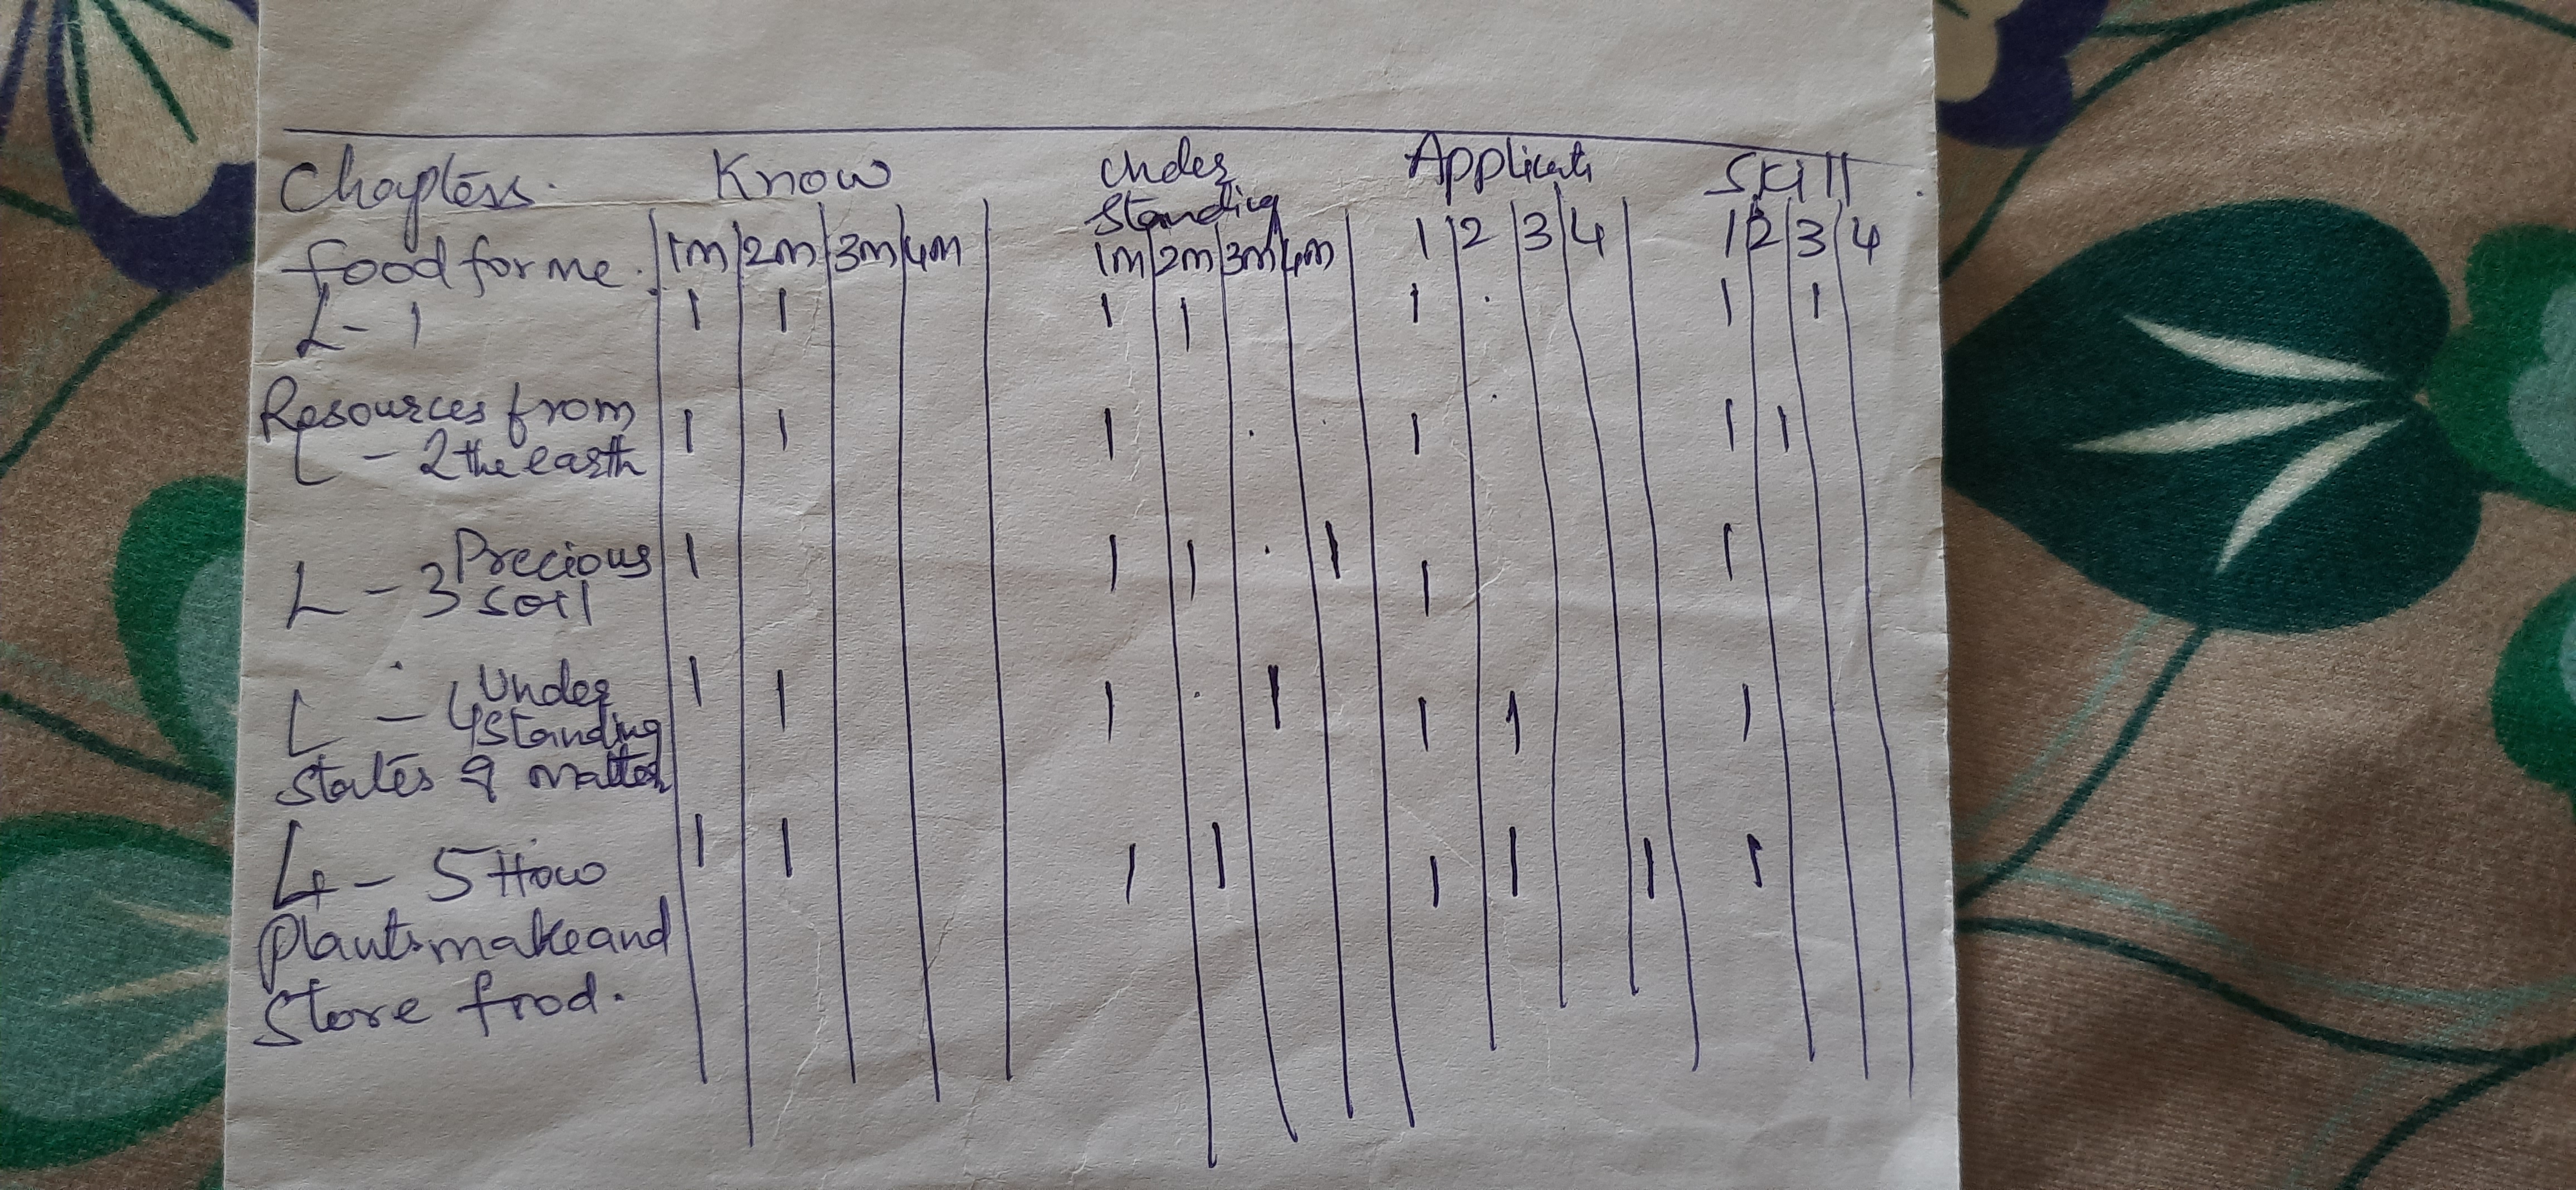 Chapters. Know Under Applicati Skill
standing
food for me. 1m 2m 3m 4m 1m 2m 3m 4m 1 2 3 4 1 2 3 4
L - 1 1 1 1 1 1 1 1
Resources from 1 1 1 1 1 1
L - 2 the earth
L - 3 Precious 1 1 1 1 1 1
soil
L - 4 Under 1 1 1 1 1 1 1
standing
states of matter
L - 5 How 1 1 1 1 1 1 1 1
plants make and
store food.